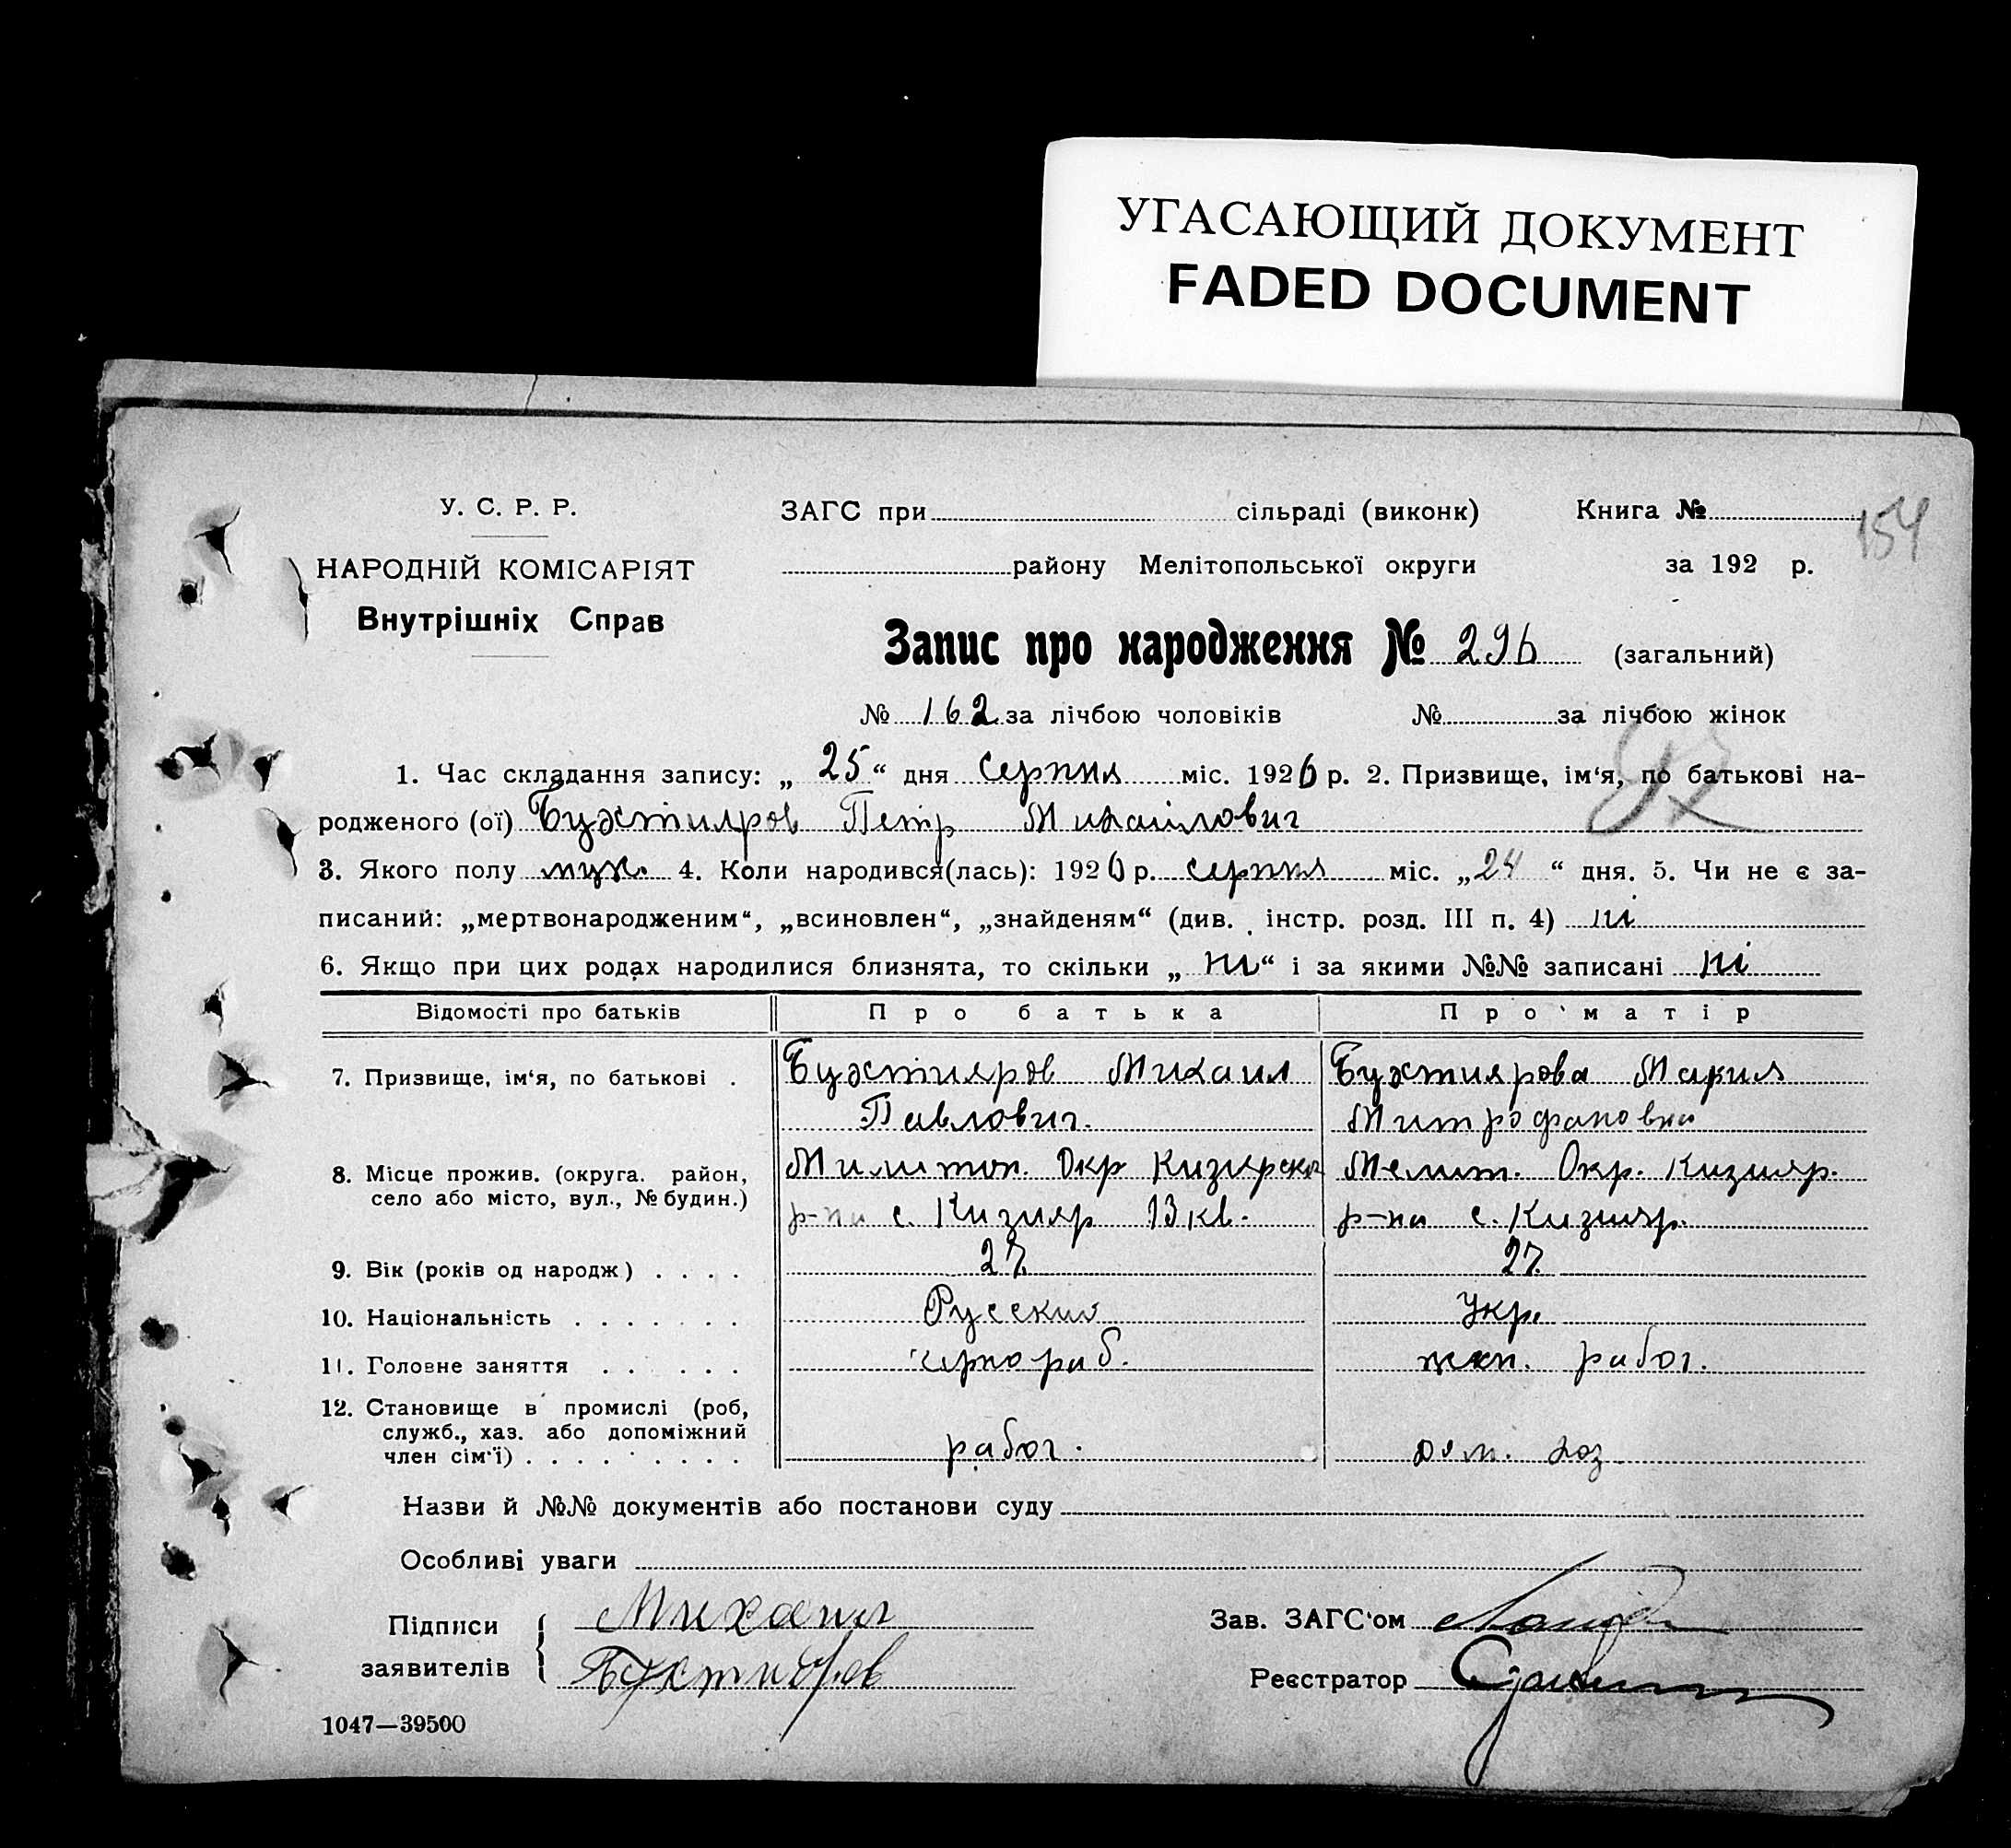 УГАСАЮЩИЙ ДОКУМЕНТ
FADED DOCUMENT
У. С. Р. Р.
НАРОДНІЙ КОМІСАРІЯТ
Внутрішніх Справ
ЗАГС при сільраді (виконк) Книга №
154
району Мелітопольської округи за 192 р.
Запис про народження № 296 (загальний)
№ 162 за лічбою чоловіків № за лічбою жінок
1. Час складання запису: „ 25 “ дня серпня міс. 1926 р. 2. Призвище, ім‘я, по батькові на-
родженого (ої) Бухтияров Петр Михайлович
3. Якого полу муж. 4. Коли народився(лась): 1926 р. серпня міс. „24 “ дня. 5. Чи не є за-
писаний: „мертвонародженим“, „всиновлен“, „знайденям“ (див. інстр. розд. III п. 4) ні
6. Якщо при цих родах народилися близнята, то скільки „ ні “ і за якими №№ записані ні
Відомості про батьків Про батька Про матір
7. Призвище, ім‘я, по батькові . Бухтияров Михаил Бухтиярова Мария
Павлович. Митрофановна
8. Місце прожив. (округа. район, Милитоп. Окр Кизиярског Мелит. Окр. Кизияр.
село або місто, вул., № будин.) р-на с. Кизияр 13 кв. р-на с. Кизияр.
9. Вік (років од народж) . . . . 27 27.
10. Національність . . . . . . . Русский Укр.
11. Головне заняття . . . . . чернораб. работ.
12. Становище в промислі (роб,
служб., хаз. або допоміжний
член сім‘ї) . . . . . . . . . работ. дом. хоз
Назви й №№ документів або постанови суду
Особливі уваги
Підписи Михаил Зав. ЗАГС‘ом
заявителів Бухтияров Реєстратор
1047—39500